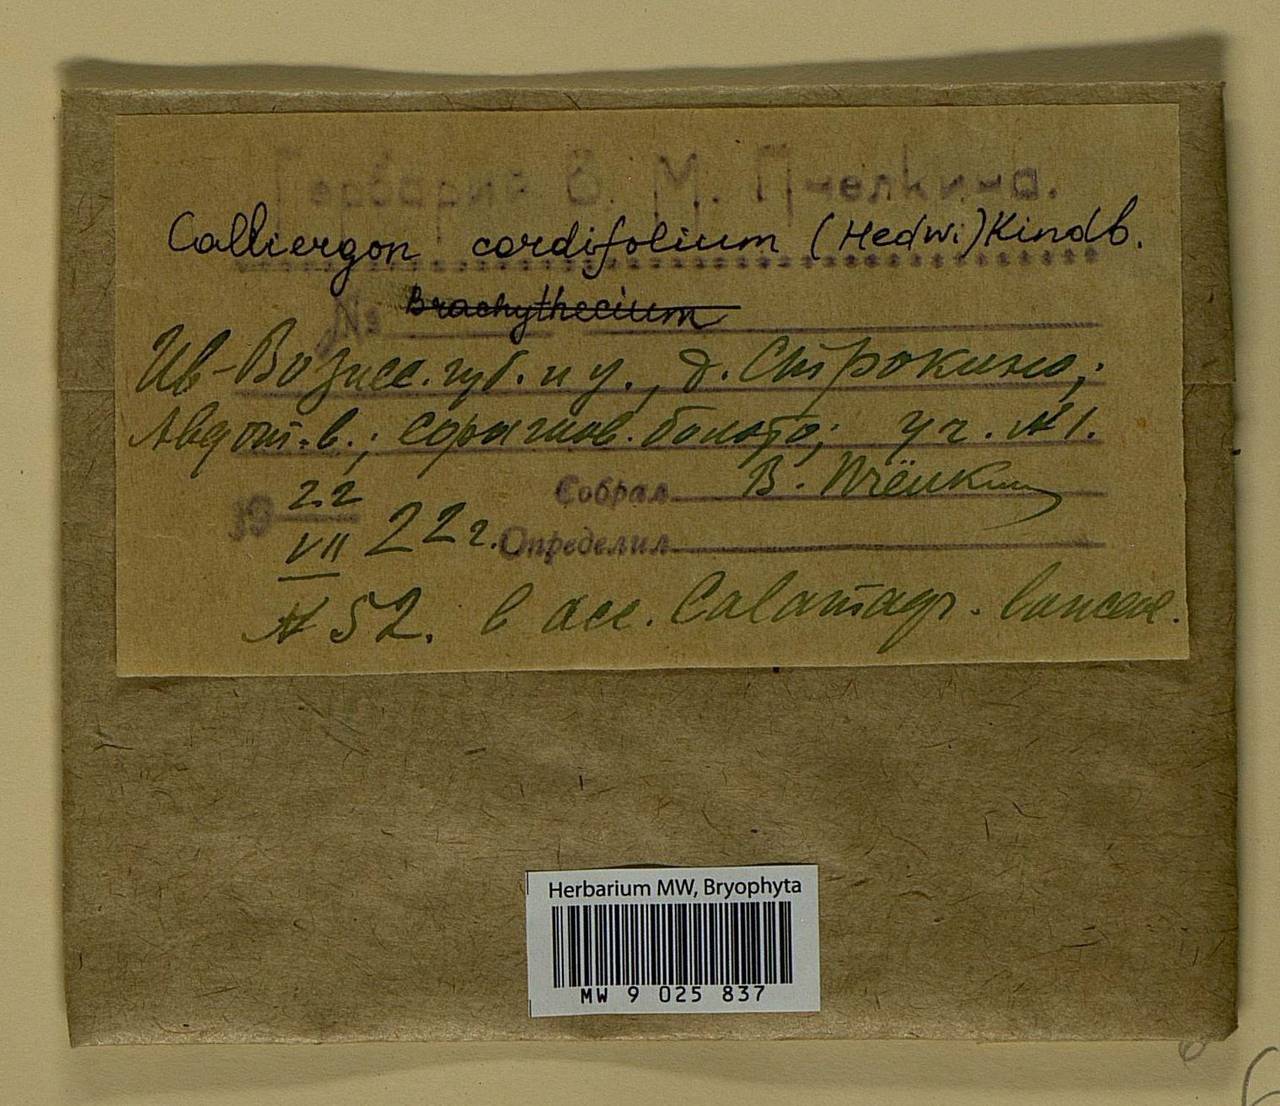 Гербарий В. М. Пчелкина.
Calliergon cordifolium (Hedwi) Kindb.
№ Brachythecium
Ив-Вознес. губ. и у., д. Строкино;
Авдот. в.; болото; уч. № 1.
Собрал В. Пчёлкин
19 22/VII 22 г. Определил
№ 52. в асс. Calamagr. lanceol.
Herbarium MW, Bryophyta
MW 9 025 837